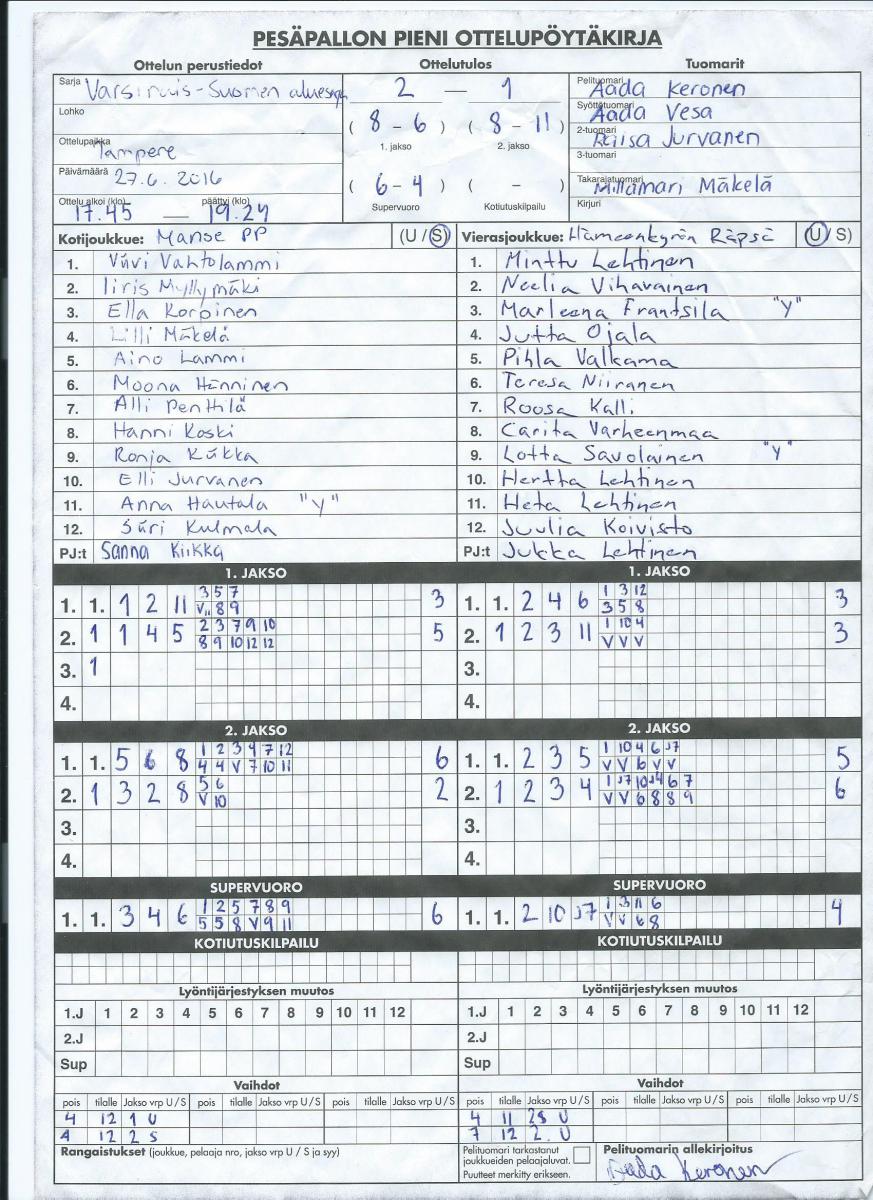 PESÄPALLON PIENI OTTELUPÖYTÄKIRJA
Ottelun perustiedot Ottelutulos Tuomarit
Sarja Varsinais-Suomen 2 — 1 Pelituomari Aada Keronen
Lohko Syöttötuomari Aada Vesa
( 8 - 6 ) ( 8 - 11 ) 2-tuomari Raisa Jurvanen
Ottelupaikka Tampere 1. jakso 2. jakso 3-tuomari
Päivämäärä 27.6.2016 ( 6 - 4 ) ( - ) Takarajatuomari Millamari Mäkelä
Ottelu alkoi (klo) päättyi (klo) Supervuoro Kotiutuskilpailu Kirjuri
17.45 — 19.24
Kotijoukkue: Manse PP (U / S) Vierasjoukkue: Hämeenkyrön Räpsä (U / S)
1. Viivi Vahtolammi 1. Minttu Lehtinen
2. Iiris Myllymäki 2. Neelia Vihavainen
3. Ella Korpinen 3. Marleena Frantsila "Y"
4. Lilli Mäkelä 4. Jutta Ojala
5. Aino Lammi 5. Pihla Valkama
6. Moona Hänninen 6. Teresa Niiranen
7. Alli Penttilä 7. Roosa Kalli
8. Hanni Koski 8. Carita Varheenmaa
9. Ronja Kukka 9. Lotta Savolainen "Y"
10. Elli Jurvanen 10. Hertta Lehtinen
11. Anna Hautala "Y" 11. Heta Lehtinen
12. Siiri Kulmala 12. Juulia Koivisto
PJ:t Sanna Kiikka PJ:t Jukka Lehtinen
1. JAKSO 1. JAKSO
3 5 7 1 3 12
1. 1. 1 2 11 V 8 9 3 1. 1. 2 4 6 3 5 8 3
2 3 7 9 10 1 10 4
2. 1 1 4 5 8 9 10 12 12 5 2. 1 2 3 11 V V V 3
3. 1 3.
4. 4.
2. JAKSO 2. JAKSO
1 2 3 9 7 12 1 10 4 6 J7
1. 1. 5 6 8 4 4 V 7 10 11 6 1. 1. 2 3 5 V V 6 V V 5
5 6 1 J7 10 J4 6 7
2. 1 3 2 8 V 10 2 2. 1 2 3 4 V V 6 8 8 9 6
3. 3.
4. 4.
SUPERVUORO SUPERVUORO
1 2 5 7 8 9 1 3 11 6
1. 1. 3 4 6 5 5 8 V 9 11 6 1. 1. 2 10 J7 V V 6 8 4
KOTIUTUSKILPAILU KOTIUTUSKILPAILU
Lyöntijärjestyksen muutos Lyöntijärjestyksen muutos
1.J 1 2 3 4 5 6 7 8 9 10 11 12 1.J 1 2 3 4 5 6 7 8 9 10 11 12
2.J 2.J
Sup Sup
Vaihdot Vaihdot
pois tilalle Jakso vrp U / S pois tilalle Jakso vrp U / S pois tilalle Jakso vrp U / S pois tilalle Jakso vrp U / S pois tilalle Jakso vrp U / S pois tilalle Jakso vrp U / S
4 12 1 U 4 11 2S U
4 12 2 S 7 12 2. U
Rangaistukset (joukkue, pelaaja nro, jakso vrp U / S ja syy) Pelituomari tarkastanut joukkueiden pelaajaluvat. Pelituomarin allekirjoitus
Puutteet merkitty erikseen. Aada Keronen